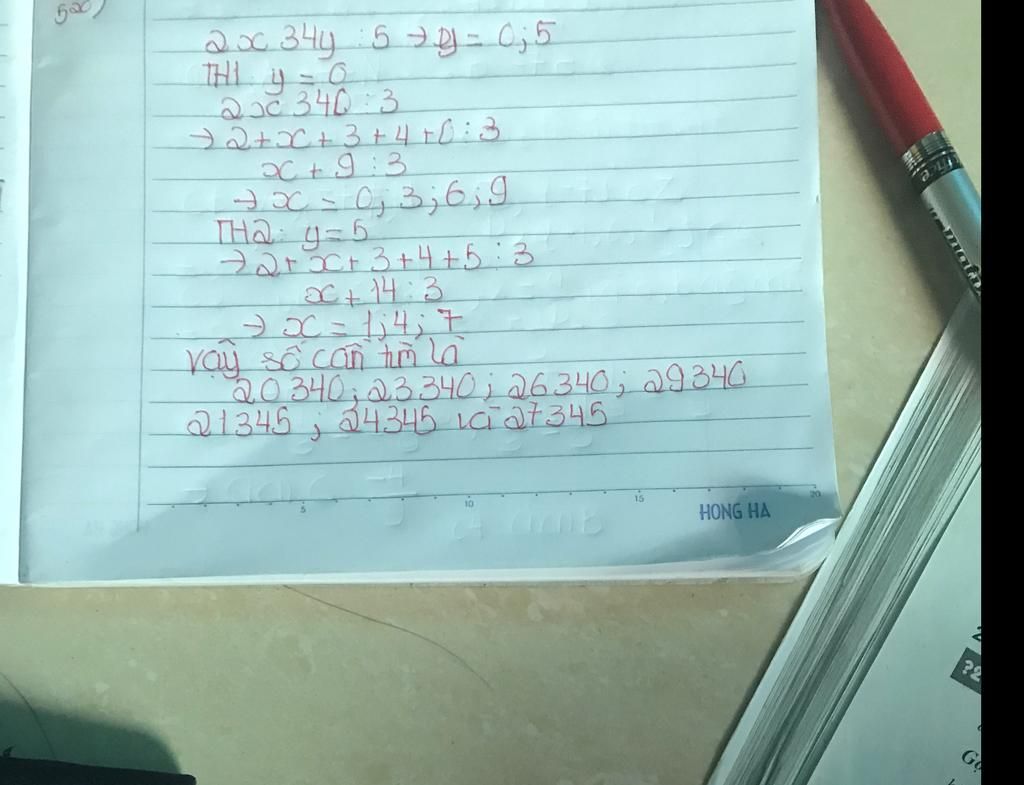 5x)
2x34y : 5 → y = 0; 5
TH1 y = 0
2x340 : 3
→ 2+x+3+4+0 : 3
x + 9 : 3
→ x = 0; 3; 6; 9
TH2: y = 5
→ 2+x+3+4+5 : 3
x + 14 : 3
→ x = 1; 4; 7
vậy số cần tìm là
20340; 23340; 26340; 29340
21345; 24345 và 27345
5 10 15 20
HONG HA
?2